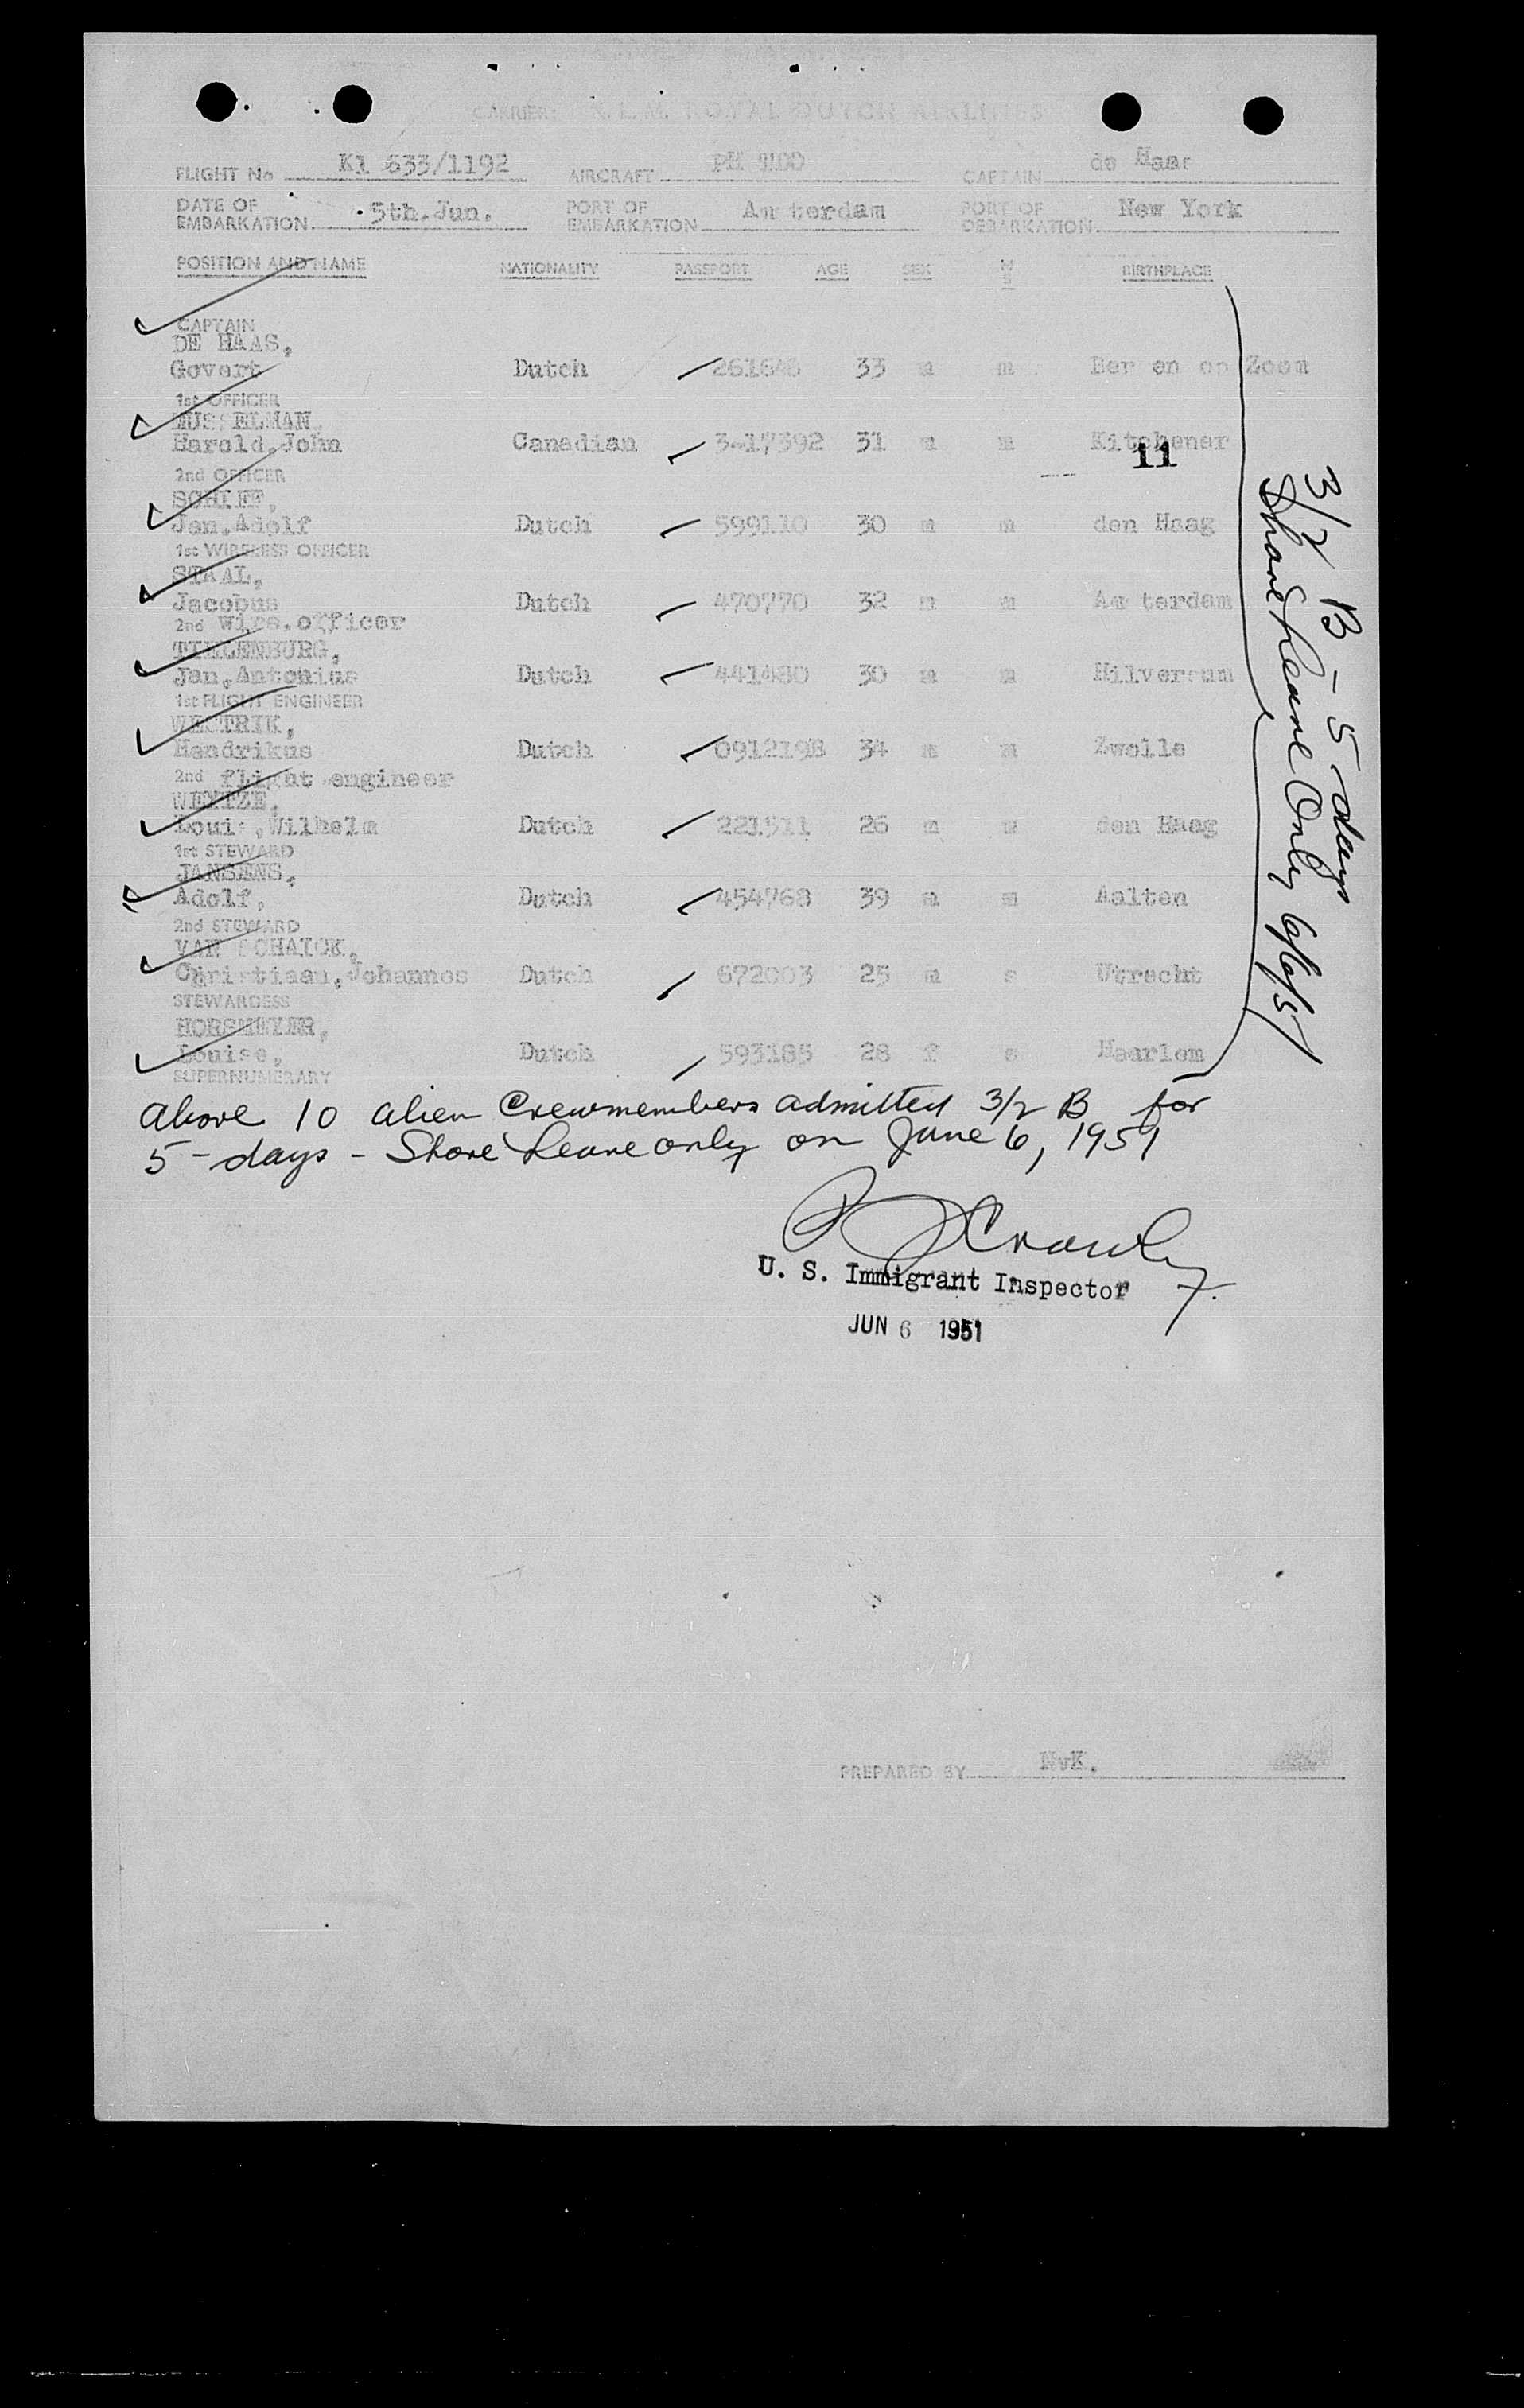 CARRIER: K.L.M. ROYAL DUTCH AIRLINES
FLIGHT No Kl 633/1192 AIRCRAFT PH CAPTAIN de Haas
DATE OF EMBARKATION 5th.Jun. PORT OF EMBARKATION Amsterdam PORT OF DEBARKATION New York
POSITION AND NAME NATIONALITY PASSPORT AGE SEX M S BIRTHPLACE
CAPTAIN
DE HAAS,
Govert Dutch 33 m m Ber en op Zoom
1st OFFICER
MUSSELMAN,
Harold.John Canadian 3-17392 31 m m Kitchener
11
2nd OFFICER
SCHIFF,
Jan.Adolf Dutch 599110 30 m m den Haag
1st WIRELESS OFFICER
STAAL,
Jacobus Dutch 470770 32 m m Am terdam
2nd Wire.officer
TIELENBURG,
Jan,Antonius Dutch 441480 30 m m Hilversum
1st FLIGHT ENGINEER
WESTRIK,
Hendrikus Dutch 34 m m Zwolle
2nd flight engineer
WEYTZE,
Louis,Wilhelm Dutch 221511 26 m m den Haag
1st STEWARD
JANSENS,
Adolf, Dutch 454768 39 m m Aalten
2nd STEWARD
VAN SCHAICK,
Christiaan,Johannes Dutch 672003 25 m s Utrecht
STEWARDESS
HORSMEIER,
Louise, Dutch 593185 28 f s Haarlem
SUPERNUMERARY
3/2 B - 5 - days
Shore Leave Only 6/6/51
Above 10 alien Crewmembers admitted 3/2 B for
5 - days - Shore Leave only on June 6, 1951
Crowley
U. S. Immigrant Inspector
JUN 6 1951
PREPARED BY NvK.